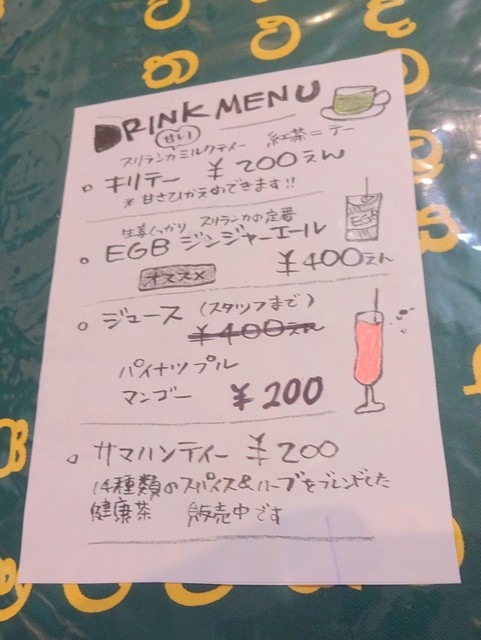 DRINK MENU
スリランカミルクティー 紅茶=テー
キリテー ¥200えん
※甘さひかえめできます!!
生姜しっかり スリランカの定番
EGB ジンジャーエール
オススメ ¥400えん
EGB
ジュース (スタッフまで)
¥400えん
パイナップル
マンゴー ¥200
サマハンティー ¥200
14種類のスパイス&ハーブをブレンドした
健康茶 販売中です